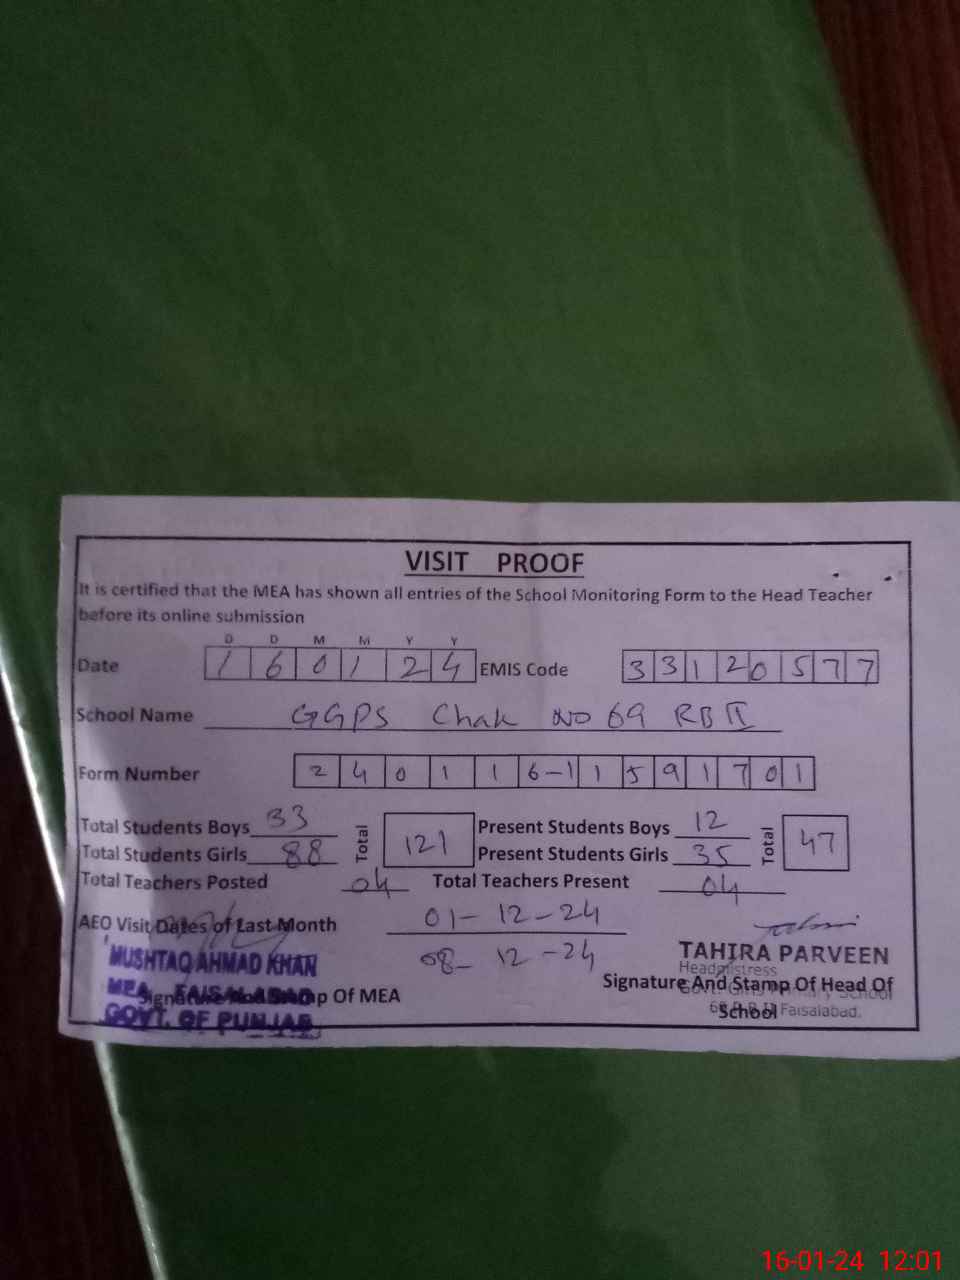 VISIT PROOF
It is certified that the MEA has shown all entries of the School Monitoring Form to the Head Teacher
before its online submission
D D M M Y Y
Date 1 6 0 1 2 4 EMIS Code 3 3 1 2 0 5 7 7
School Name GGPS Chak No 69 RB II
Form Number 2 4 0 1 1 6-1 1 5 9 1 7 0 1
Total Students Boys 33 Total 121 Present Students Boys 12 Total 47
Total Students Girls 88 Present Students Girls 35
Total Teachers Posted 04 Total Teachers Present 04
AEO Visit Dates of Last Month 01-12-24
08-12-24
MUSHTAQ AHMAD KHAN
MEA FAISALABAD
GOVT. OF PUNJAB
Signature And Stamp Of MEA
TAHIRA PARVEEN
Headmistress
Govt. Girls Primary School
69 R.B II Faisalabad.
Signature And Stamp Of Head Of
School
16-01-24 12:01